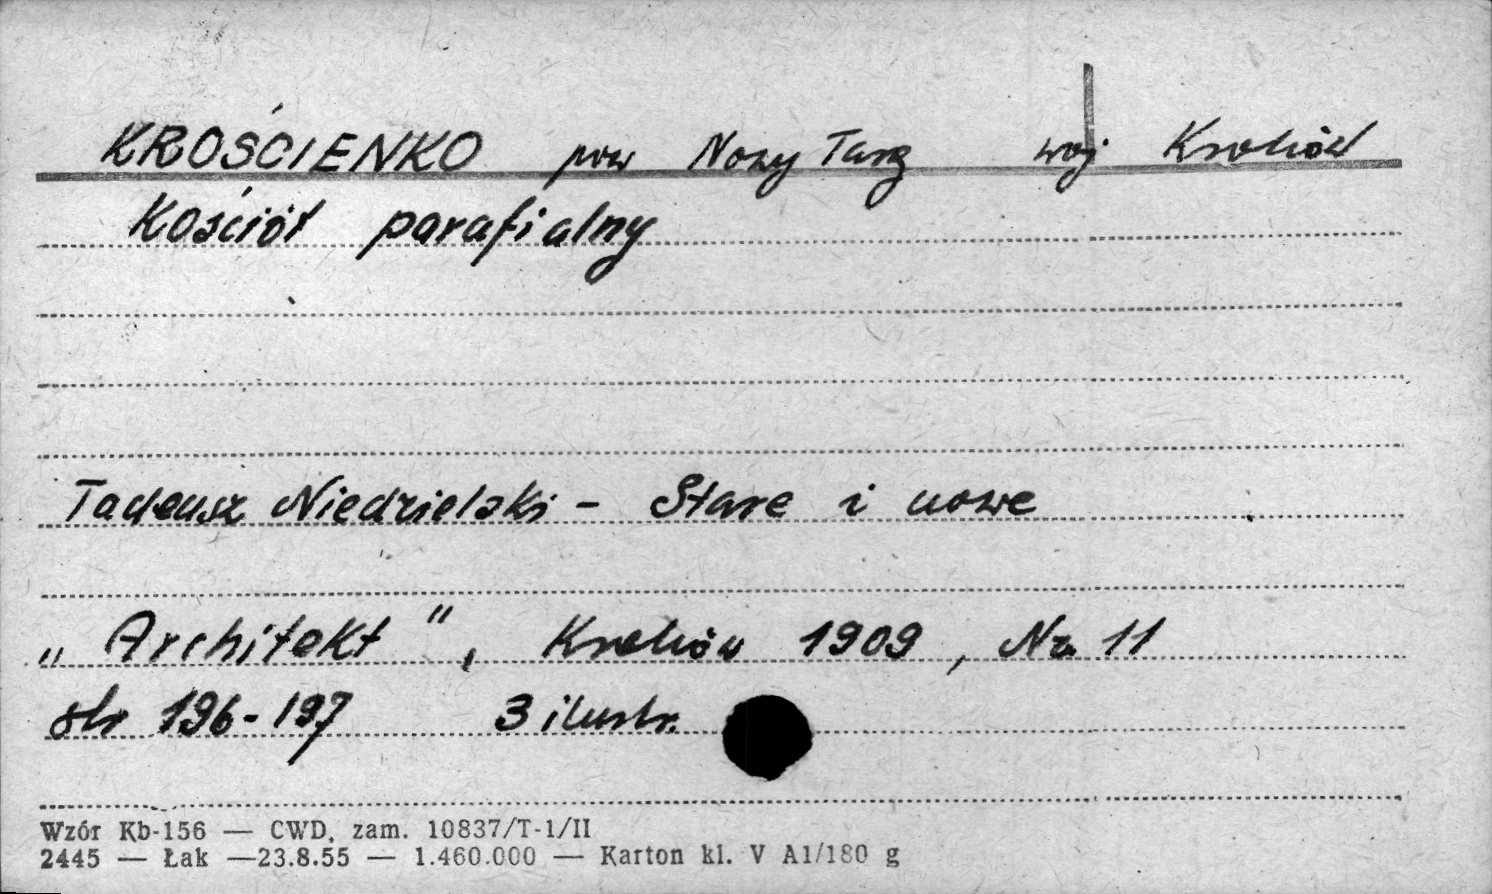 KROŚCIENKO pow Nowy Targ woj Kraków
Kościół parafialny
Tadeusz Niedzielski - Stare i nowe
„Architekt", Kraków 1909, Nr 11
str 196-197 3 ilustr.
Wzór Kb-156 — CWD, zam. 10837/T-1/II
2445 — Łak —23.8.55 — 1.460.000 — Karton kl. V A1/180 g